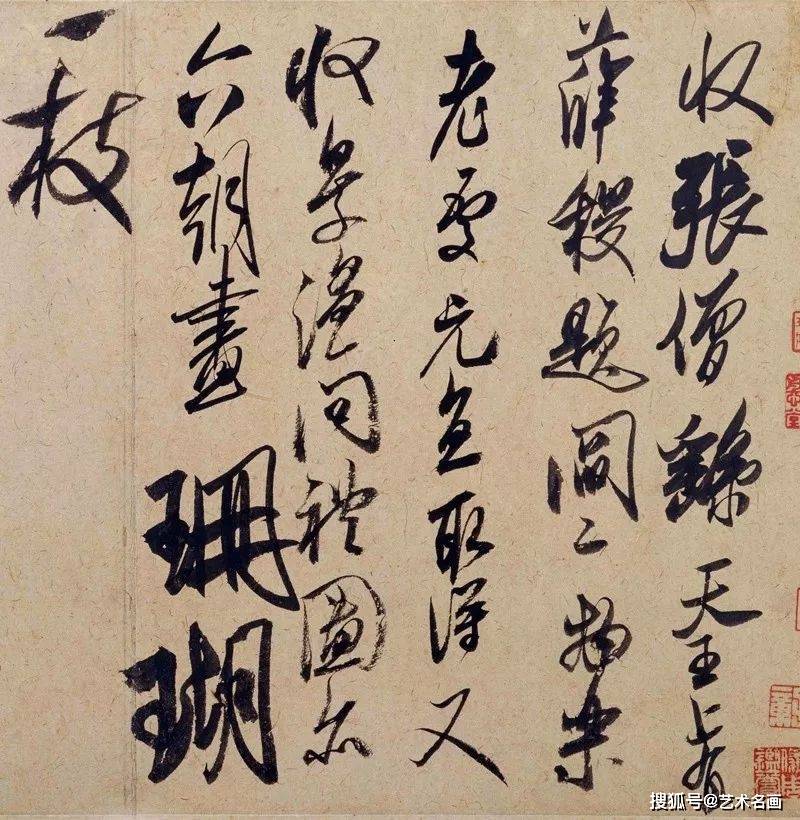 收張僧繇天王上有
薛稷題閻二物樂
老處元直取得又
收景溫問禮圖亦
六朝畫珊瑚
一枝
搜狐号@艺术名画